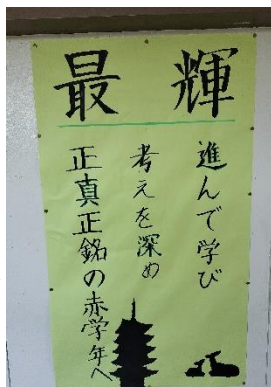 最輝
進んで学び
考えを深め
正真正銘の赤学年へ